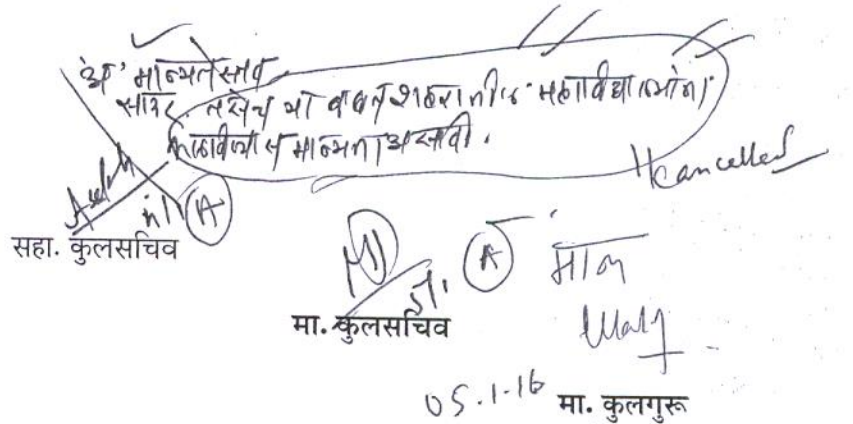 'अ' मान्यतेस्तव
सादर. तसेच या बाबत शहरातील महाविद्यालयांना
कळविण्यास मान्यता असावी.
cancelled
A
सहा. कुलसचिव
A
मान्य
मा. कुलसचिव
05.1.16 मा. कुलगुरू